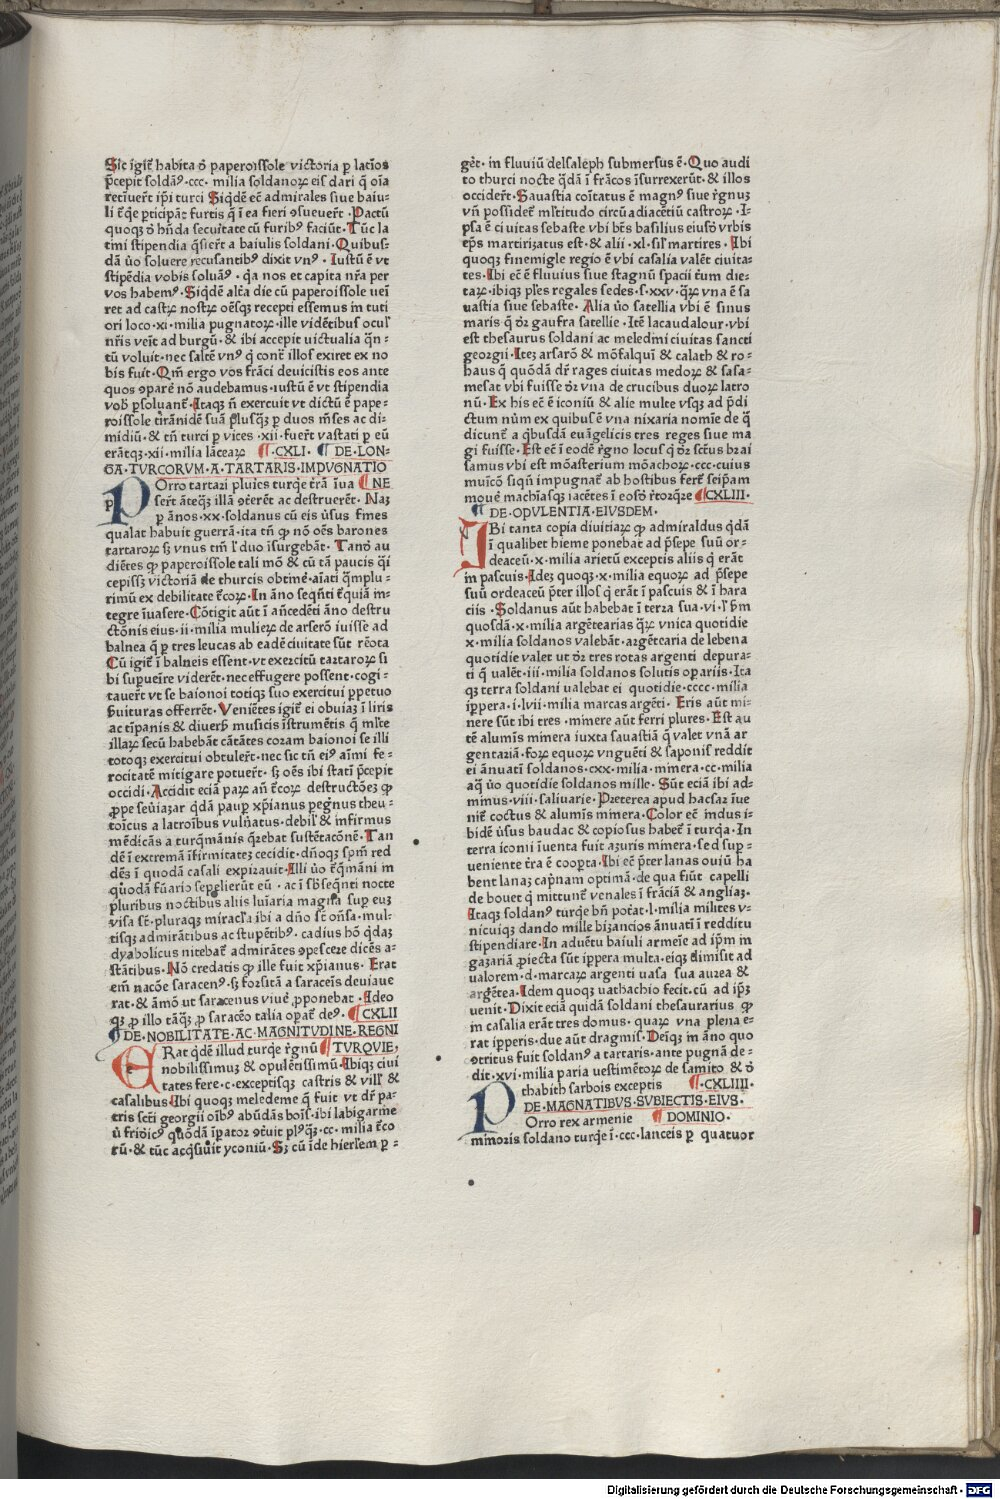 Sic igit̃ habita õ paperoissole victoria p latĩos
p̃cepit soldã⁹ ·ccc· milia soldanoꝝ eis dari q̃ oĩa
retĩuer̃t ip̃i turci Siq̃dẽ eẽ admirales siue baiu⸗
li t̃q̃e p̱ticipãt furtis q̃ ĩ ea fieri ꝯsueuer̃t · Pactũ
quoqꝫ õ hñda securitate cũ furib⁹ faciũt · Tũc la
tini stipendia q̃sier̃t a baiulis soldani · Quibus⸗
dã ũo soluere recusantib⁹ dixit vn⁹ · Iustũ ẽ vt
stipẽdia vobis soluã⁹ · q̃a nos et capita nr̃a per
vos habem⁹ · Siq̃dẽ alt̃a die cũ paperoissole ueĩ
ret ad castꝝ nostꝝ oẽsqꝫ recepti essemus in tuti
ori loco ·xi· milia pugnatoꝝ · ille vidẽtibus ocul̃
nr̃is veĩt ad burgũ · & ibi accepit uictualia q̃n⸗
tũ voluit · nec saltẽ vn⁹ q̃ contᷓ illos exiret ex no
bis fuit · Qm̃ ergo vos frãci deuicistis eos ante
quos ꝯparẽ nõ audebamus · iustũ ẽ vt stipendia
vob̃ p̱soluant̃ · Itaqꝫ ñ exercuit vt dictũ ẽ pape⸗
roissole tirãnidẽ suã pl̃usqꝫ p̱ duos m̃ses ac di⸗
midiũ · & tñ turci p̱ vices ·xii· fuer̃t vastati p̱ eũ
erãtqꝫ ·xii· milia lãceaꝝ ¶ ·CXLI· ¶ DE·LON⸗
GA·TVRCORVM·A·TARTARIS·IMPVGNATIO
POrro tartari pluïes turq̃e t̃rã ĩua ¶ NE
ser̃t ãteq̃ꝫ illã ꝯt̃erẽt ac destruerẽt · Naꝫ
p̱ ãnos ·xx· soldanus cũ eis ũsus fines
qualat habuit guerrã · ita tñ ꝙ nõ oẽs barones
tartaroꝝ sꝫ vnus tm̃ l̃ duo ĩsurgebãt · Tanõ au
diẽtes ꝙ paperoissole tali mõ & cũ tã paucis q̃i
cepissꝫ victoriã de thurcis obtinẽ · aĩati q̃mplu⸗
rimũ ex debilitate t̃coꝝ · In ãno seq̃nti t̃quiã in⸗
tegre ĩuasere · Cõtigit aũt ĩ añcedẽti ãno destru
ctõnis eius ·ii· milia mulieꝝ de arserõ iuisse ad
balnea q̃ p̱ tres leucas ab eadẽ ciuitate sũt rẽota
Cũ igit̃ ĩ balneis essent · vt exercitũ tartaroꝝ si
bi sup̱ueĩre viderẽt · nec effugere possent · cogi⸗
tauer̃t vt se baionoi totiqꝫ suo exercitui p̱petuo
ẜuituras offerrẽt · Veniẽtes igit̃ ei obuiaꝫ ĩ liris
ac tĩpanis & diuerẜ musicis ĩstrumẽtis q̃ ml̃te
illaꝝ secũ habebãt cãtãtes coram baionoi se illi
totoqꝫ exercitui obtuler̃t · nec sic tñ ei⁹ aĩmi fe⸗
rocitatẽ mitigare potuer̃t · sꝫ oẽs ibi statĩ p̃cepit
occidi · Accidit eciã paꝝ añ t̃coꝝ destructõeꝫ ꝙ
ꝓpe seũiaꝫar q̃dã paup̱ xp̃ianus p̱egrin⁹ theu⸗
toĩcus a latroĩbus vulñatus · debil̃ & infirmus
mẽdicãs a turq̃mãnis q̃rebat sustẽtacõnẽ · Tan
dẽ ĩ extremã ĩfirmitateꝫ cecidit · dñoqꝫ sp̃m red
dẽs ĩ quodã casali expirauit · Illi ũo t̃q̃mãni in
quõdã fũario sepelierũt eũ · ac ĩ sb̃seq̃nti nocte
pluribus noctibus aliis luĩaria magna sup̱ euꝫ
visa sũt · pluraqꝫ miracl̃a ibi a dño sũt oñsa · mul⸗
tisqꝫ admirãtibus ac stupẽtib⁹ · cadius hõ q̃daꝫ
dyabolicus nitebat̃ admirãtes ꝯpescere dicẽs a⸗
stãtibus · Nõ credatis ꝙ ille fuit xp̃ianus · Erat
em̃ nacõe saracen⁹ · sꝫ forsitã a saraceĩs deuiaue
rat · & ãmõ ut saracenus viuẽ ꝓponebat · Ideo
qꝫ ꝓ illo tãq̃ꝫ ꝓ saracẽo talia opat̃ de⁹ · ¶ CXLII
¶ DE·NOBILITATE·AC·MAGNITVDINE·REGNI
ERat q̃dẽ illud turq̃e r̃gnũ ¶ TVRQVIE,
nobilissimuꝫ & opulẽtissimũ · Ibiqꝫ ciui
tates fere ·c· exceptisqꝫ castris & vill̃ &
casalibus · Ibi quoqꝫ meledeme q̃ fuit vt dr̃ pa⸗
tris sc̃ti georgii oĩb⁹ abũdãs boĩs · ibi labigarme
ũ friðic⁹ quõdã ĩpator ꝯt̃uit pl⁹q̃ꝫ ·cc· milia t̃co
rũ · & tũc acq̃siuit yconiũ · Sꝫ cũ ĩde hierl̃em p̱⸗
gẽt · in fluuiũ delsaleph submersus ẽ · Quo audi
to thurci nocte q̃dã ĩ frãcos ĩsurrexerũt · & illos
occider̃t · Sauastia coĩtatus ẽ magn⁹ siue r̃gnuꝫ
vñ possidet̃ ml̃titudo circũadiacẽtiũ castroꝝ · I⸗
psa ẽ ciuitas sebaste vbi bẽs basilius eiusõ vrbis
ep̃s martirizatus est · & alii ·xl· sil̃ martires · Ibi
quoqꝫ finemigle regio ẽ vbi casalia valẽt ciuita⸗
tes · Ibi ec̃ ẽ fluuius siue stagnũ spacii t̃ium die⸗
taꝝ · ibiqꝫ pl̃es regales sedes · s · xxv · q̃ꝝ vna ẽ sa
uastia siue sebaste · Alia ũo satellia vbi ẽ sinus
maris q̃ dr̃ gaufra satellie · Itẽ lacaudalour · vbi
est thesaurus soldani ac meledini ciuitas sancti
georgii · Iteꝫ arsarõ & mõfalqui & calath & ro⸗
haus q̃ quõdã dr̃ rages ciuitas medoꝝ & sasa⸗
mesat vbi fuisse dr̃ vna de crucibus duoꝝ latro
nũ · Ex his ec̃ ẽ iconiũ & alie multe vsqꝫ ad p̃di
ctum nũm ex quibus ẽ vna nixaria nomie de q̃
dicunt̃ a q̃busdã euãgelicis tres reges siue ma
gi fuisse · Est ec̃ ĩ eodẽ r̃gno locus q̃ dr̃ sc̃tus brai
samus vbi est mõasterium mõachoꝝ ·ccc· cuius
muïcõ siqñ impugnat̃ ab hostibus fert̃ seip̃am
mouẽ machĩasqꝫ iacẽtes ĩ eosõ r̃torq̃re ¶ CXLIII·
¶ DE·OPVLENTIA·EIVSDEM·
IBi tanta copia diuitiaꝝ ꝙ admiraldus q̃dã
ĩ qualibet hieme ponebat ad p̃sepe suũ or⸗
deaceũ ·x· milia arietũ exceptis aliis q̃ erãt
in pascuis · Ideꝫ quoqꝫ ·x· milia equoꝝ ad p̃sepe
suũ ordeaceũ p̃ter illos q̃ erãt ĩ pascuis & ĩ hara
ciis · Soldanus aũt habebat ĩ terza sua ·vi· l̃ ẜm
quosdã ·x· milia argẽtearias q̃ꝝ vnica quotidie
x· milia soldanos valebãt · argẽtearia de lebena
quotidie valet ut dr̃ tres rotas argenti depura⸗
ti q̃ ualẽt ·iii· milia soldanos solutis opariis · Ita
qꝫ terra soldani ualebat ei quotidie ·cccc· milia
iꝑpera ·i·lvii· milia marcas argẽti · Eris aũt mi⸗
nere sũt ibi tres · minere aũt ferri plures · Est au
tẽ alumis minera iuxta sauastiã q̃ valet vnã ar
gentariã · foꝝ equoꝝ vnguẽti & saponis reddit
ei ãnuati soldanos ·cxx· milia · minera ·cc· milia
aq̃ ũo quotidie soldanos mille · Sũt eciã ibi ad⸗
minus ·viii· saliuarie · Preterea apud hacsar ĩue
niẽ coctus & alumis minera · Color ec̃ indus i⸗
bidẽ ũsus baudac & copiosus habet̃ ĩ turq̃a · In
terra iconii ĩuenta fuit aꝫuris minera · sed sup⸗
ueniente t̃ra ẽ coopta · Ibi ec̃ p̃ter lanas ouiũ ha
bent lanaꝫ cap̃nam optimã · de qua fiũt capelli
de bouet q̃ mittunt̃ venales ĩ frãciã & angliaꝫ·
Itaqꝫ soldan⁹ turq̃e bñ potat ·l· milia milites v⸗
nicuiqꝫ dando mille biꝫancios ãnuatĩ ĩ redditu
stipendiare · In aduẽtu baiuli armeĩe ad ip̃m in
gaꝫariã ꝓiecta sũt iꝑpera multa · eiqꝫ dimisit ad
ualorem ·d· marcaꝝ argenti uasa sua aurea &
argẽtea · Idem quoqꝫ uathachio fecit · cũ ad ip̃ꝫ
uenit · Dixit eciã quidã soldani thesaurarius ꝙ
in casalia erãt tres domus · quaꝝ vna plena e⸗
rat iꝑperis · due aũt dragmis · Deĩqꝫ in ãno quo
ꝯtritus fuit soldan⁹ a tartaris · ante pugnã de⸗
dit ·xvi· milia paria uestimẽtoꝝ de samito & õ
pthabith sarbois exceptis ¶ ·CXLIIII·
DE·MAGNATIBVS·SVBIECTIS·EIVS·
POrro rex armenie ¶ DOMINIO·
minoris soldano turq̃e ĩ ·ccc· lanceis p̱ quatuor
Digitalisierung gefördert durch die Deutsche Forschungsgemeinschaft - DFG